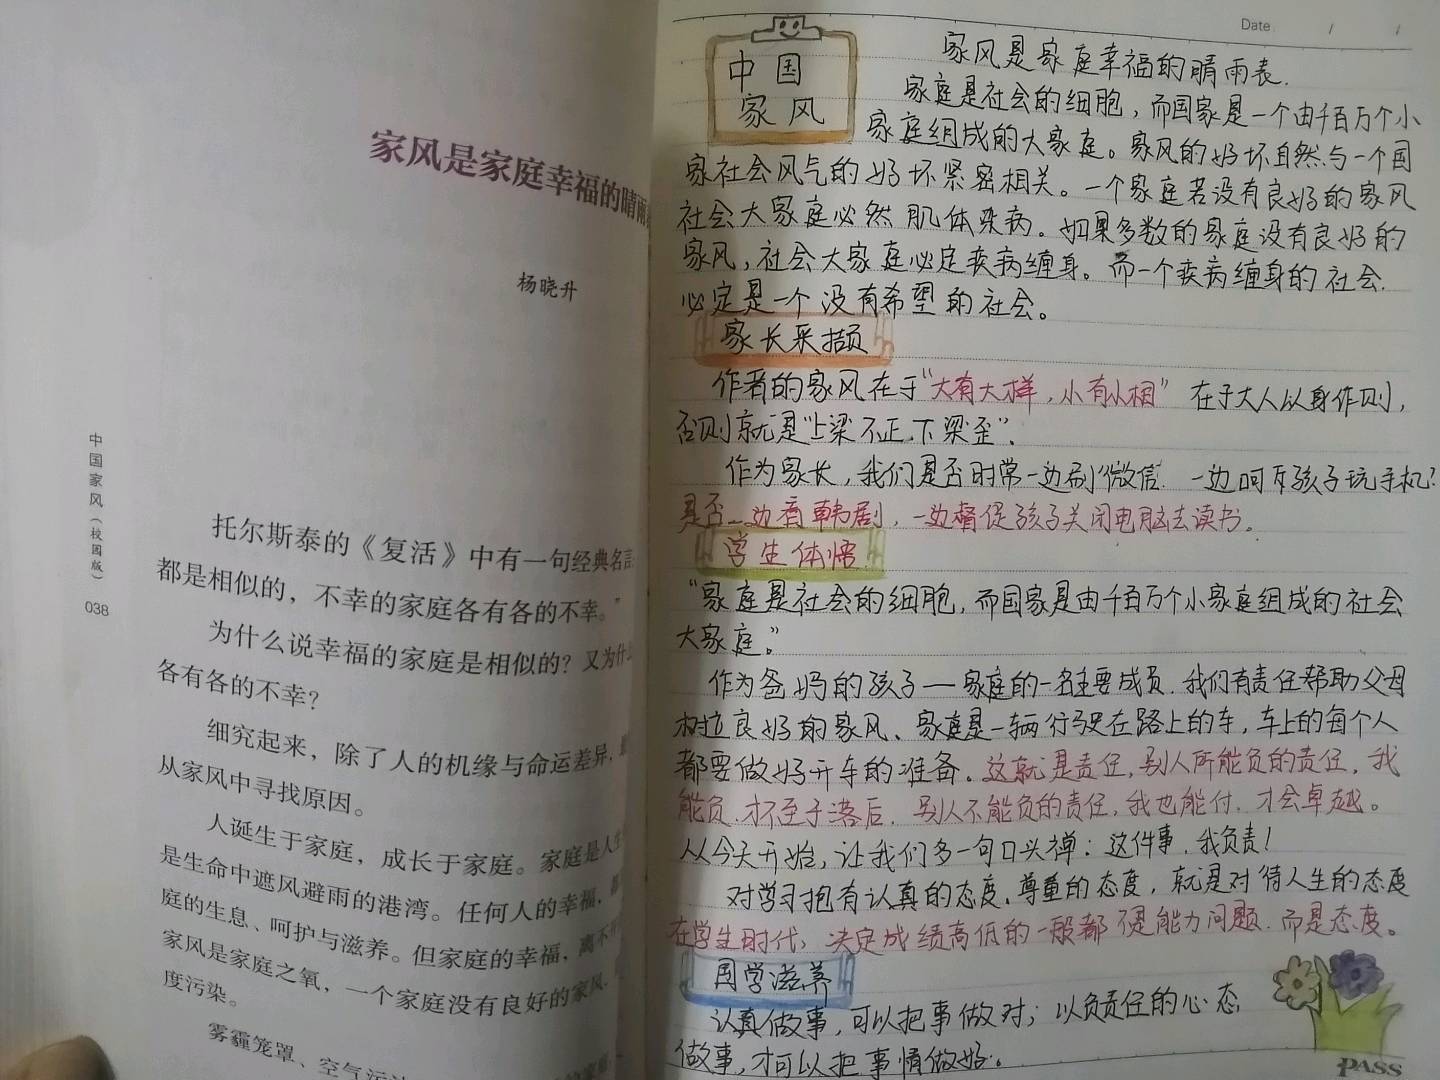 家风是家庭幸福的晴雨
杨晓升
中国家风（校园版）
038
托尔斯泰的《复活》中有一句经典名言
都是相似的，不幸的家庭各有各的不幸。”
为什么说幸福的家庭是相似的？又为什么
各有各的不幸？
细究起来，除了人的机缘与命运差异，
从家风中寻找原因。
人诞生于家庭，成长于家庭。家庭是人生
是生命中遮风避雨的港湾。任何人的幸福，都
庭的生息、呵护与滋养。但家庭的幸福，离不开
家风是家庭之氧，一个家庭没有良好的家风，
度污染。
雾霾笼罩、空气污染
Date / /
中国
家风
家风是家庭幸福的晴雨表.
家庭是社会的细胞，而国家是一个由千百万个小
家庭组成的大家庭。家风的好坏自然与一个国
家社会风气的好坏紧密相关。一个家庭若没有良好的家风
社会大家庭必然肌体染病。如果多数的家庭没有良好的
家风，社会大家庭必定疾病缠身。而一个疾病缠身的社会.
必定是一个没有希望的社会。
家长采撷
作者的家风在于“大有大样，小有小相” 在于大人以身作则，
否则就是“上梁不正.下梁歪”.
作为家长，我们是否时常一边刷微信. 一边呵斥孩子玩手机？
是否一边看韩剧，一边督促孩子关闭电脑去读书。
学生体悟
“家庭是社会的细胞，而国家是由千百万个小家庭组成的社会
大家庭。”
作为爸妈的孩子—家庭的一名主要成员.我们有责任帮助父母
树立良好的家风、家庭是一辆行驶在路上的车，车上的每个人
都要做好开车的准备。这就是责任，别人所能负的责任，我
能负.才不至于落后. 别人不能负的责任，我也能付.才会卓越。
从今天开始，让我们多一句口头禅：这件事，我负责！
对学习抱有认真的态度、尊重的态度，就是对待人生的态度
在学生时代，决定成绩高低的一般都不是能力问题.而是态度。
国学滋养
认真做事，可以把事做对；以负责任的心态
做事，才可以把事情做好.
PASS